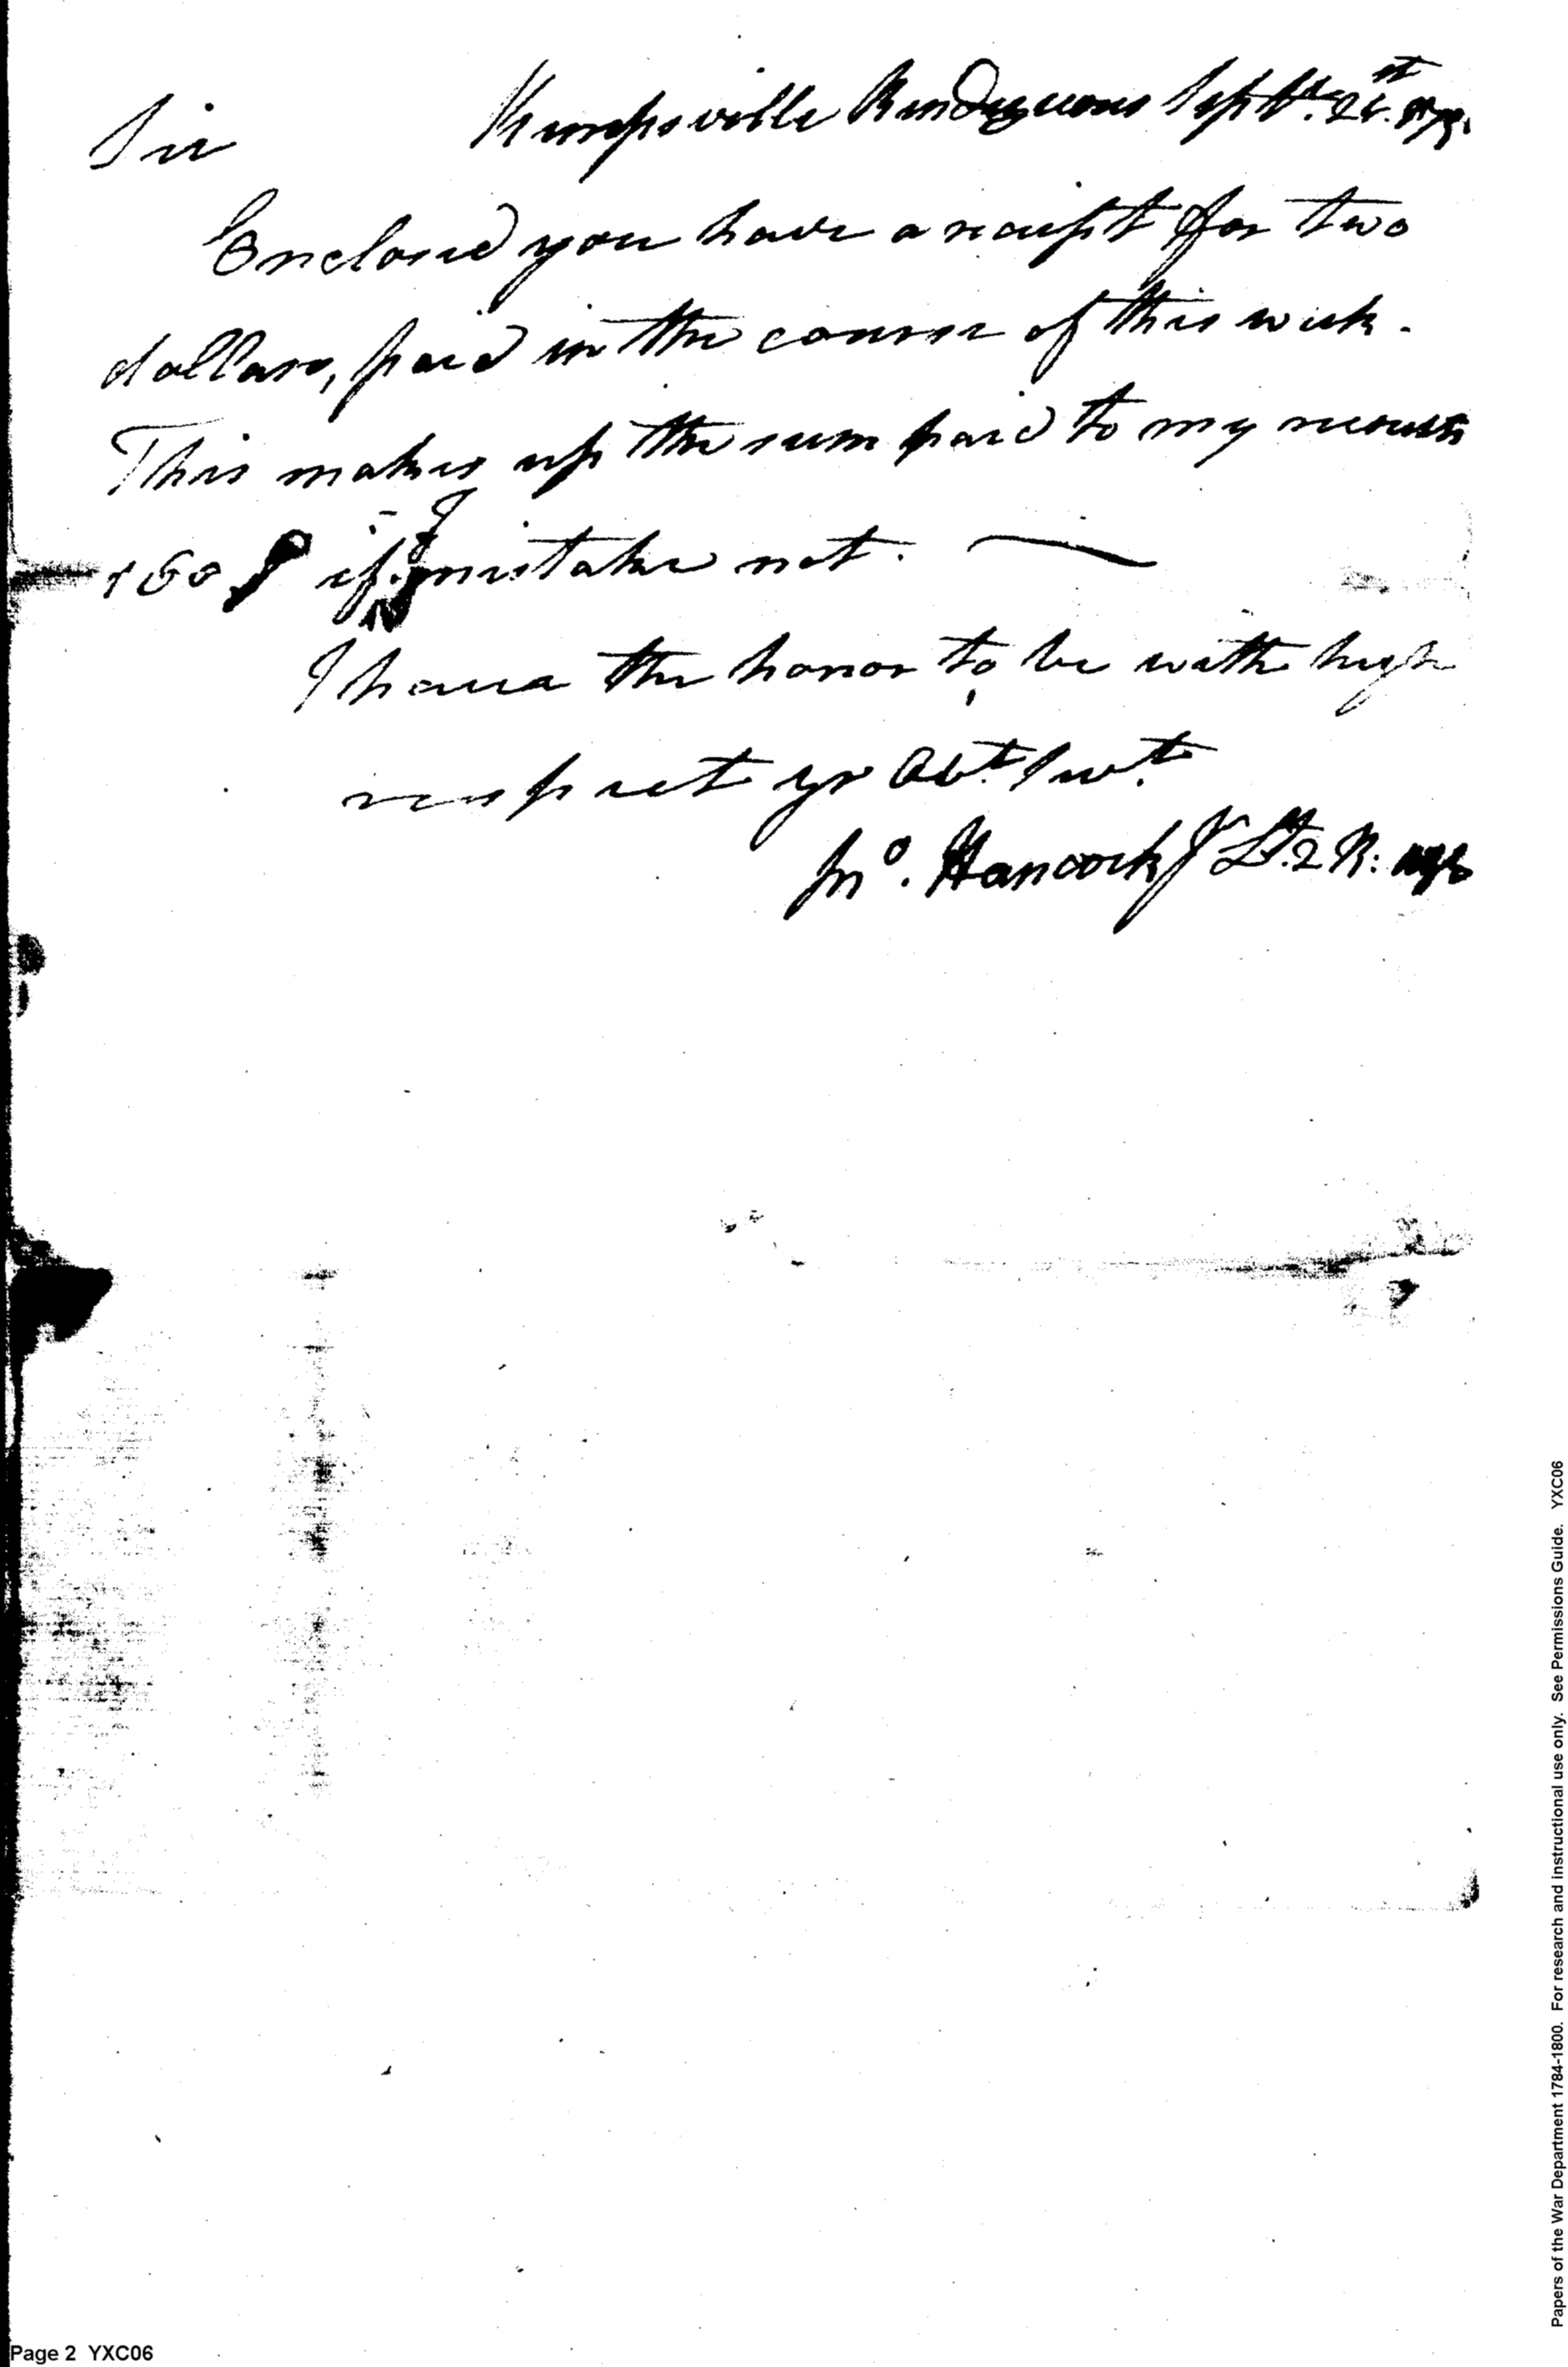 Sir Kempsville Rendezvous Septr. 21st
Enclosed you have a receipt for two
dollars, paid in the course of this week.
This makes up the sum paid to my recruits
160 $ if I mistake not.
I have the honor to be with high
respect yr Obt. Svt.
Hancock Lt. 2 R:
Papers of the War Department 1784-1800. For research and instructional use only. See Permissions Guide. YXC06
Page 2 YXC06